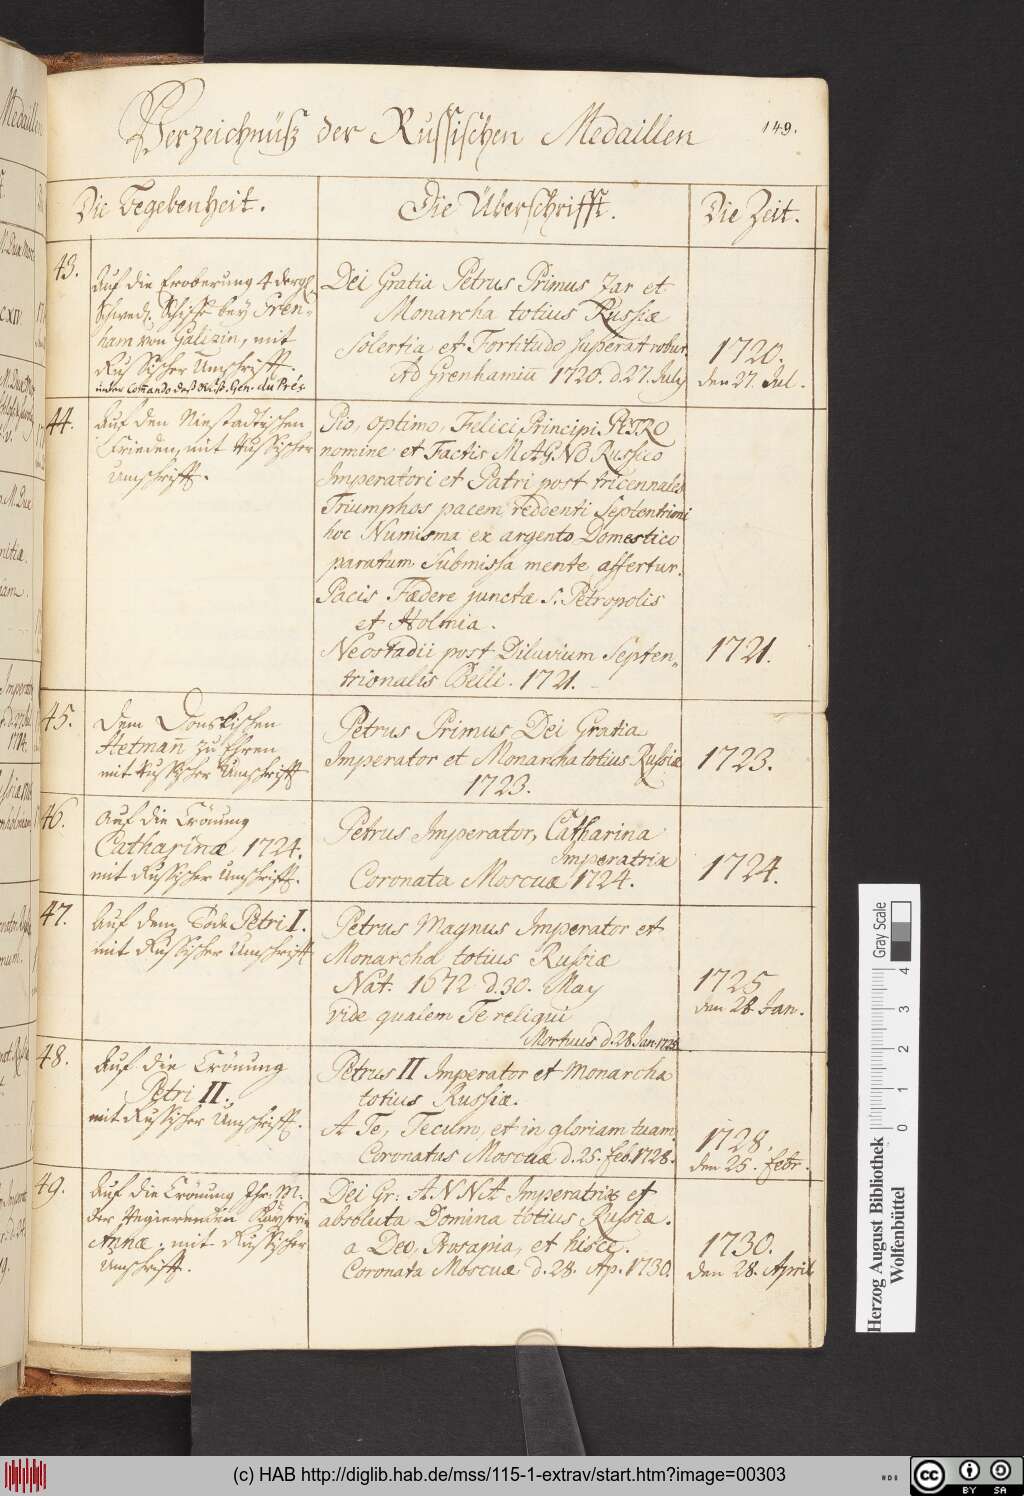 Verzeichnüß der Russischen Medaillen
149.
Die Begebenheit.
Die Überschrifft.
Die Zeit.
43.
Auf die Eroberung 4 dergl.
Schwed. Schiffe bey Gren-
ham von Galizin, mit
Russischer Umschrifft.
unter Commando deß
Dei Gratia Petrus Primus Zar et
Monarcha totius Russiæ
Solertia et Fortitudo superat robur.
Ad Grenhamiu 1720. d. 27. July
1720.
den 27. Jul.
44.
Auf den Niestadtischen
Frieden, mit Russischer
Umschrifft.
Pio, optimo, Felici Principi PETRO
nomine et Factis MAGNO Russico
Imperatori et Patri post tricennales
Triumphos pacem reddenti Septentrioni
hoc Numisma ex argento Domestico
paratum Submissa mente affertur.
Pacis Fædere junctæ S. Petropolis
et Holmia.
Neostadii post Diluvium Septen-
trionalis Belli. 1721.
1721.
45.
Dem Donskischen
Hetman zu Ehren
mit Russischer Umschrifft
Petrus Primus Dei Gratia
Imperator et Monarcha totius Russiæ
1723.
1723.
46.
Auf die Crönung
Catharinæ 1724.
mit Russischer Umschrifft.
Petrus Imperator, Catharina
Imperatrix
Coronata Moscuæ 1724.
1724.
47.
Auf dem Tode Petri I.
mit Russischer Umschrifft
Petrus Magnus Imperator et
Monarcha totius Russiæ
Nat. 1672 d. 30. May
vide qualem Te reliqui
Mortuus d. 28 Jan. 1725
1725
den 28. Jan.
48.
Auf die Crönung
Petri II.
mit Russischer Umschrifft.
Petrus II Imperator et Monarcha
totius Russiæ.
A Te, Tecum, et in gloriam tuam.
Coronatus Moscuæ d. 25. feb. 1728.
1728.
den 25. febr.
49.
Auf die Crönung Ihr. M.
der Regierenden Kayserin
Annæ. mit Russischer
Umschrifft.
Dei Gr: ANNA Imperatrix et
absoluta Domina totius Russiæ.
a Deo, Prosapia, et hisce.
Coronata Moscuæ d. 28. Ap. 1730.
1730.
den 28. April
Herzog August Bibliothek
Wolfenbüttel
Gray Scale
0 1 2 3 4
(c) HAB http://diglib.hab.de/mss/115-1-extrav/start.htm?image=00303
HAB
cc BY SA